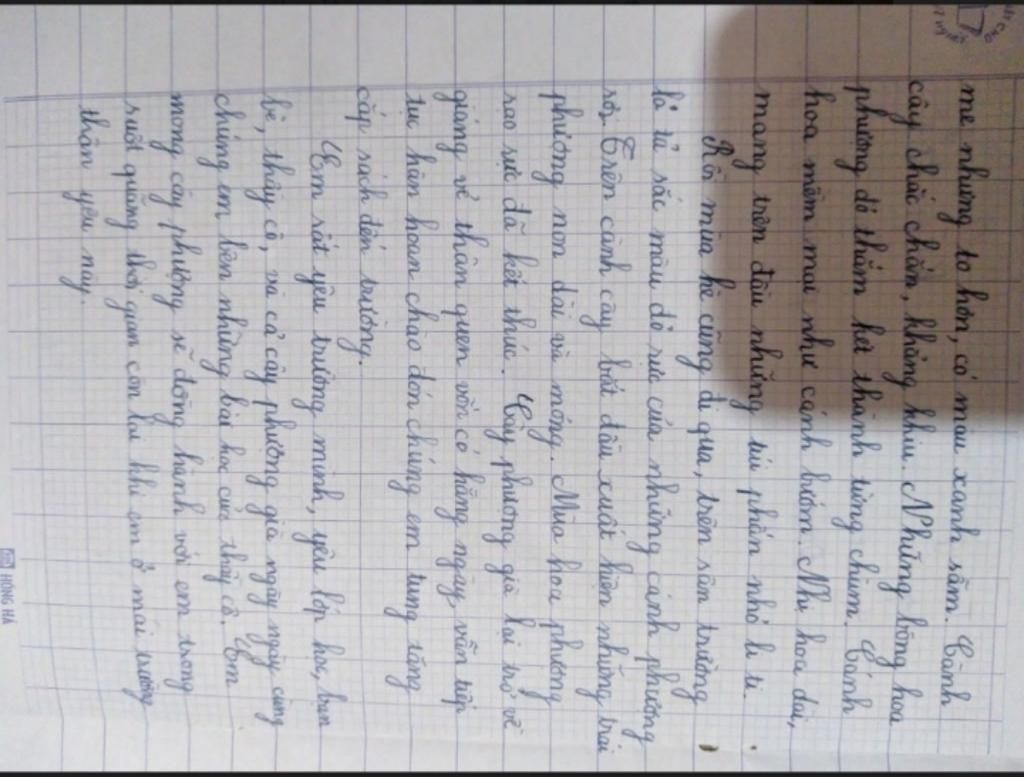 me nhưng to hơn, có màu xanh sẫm. Cành
cây chắc chắn, khẳng khiu. Những bông hoa
phượng đỏ thắm kết thành từng chùm. Cánh
hoa mềm mại như cánh bướm. Nhị hoa dài,
mang trên đầu những túi phấn nhỏ li ti.
Rồi mùa hè cũng đi qua, trên sân trường
là từ sắc màu đỏ rực của những cánh phượng
rơi. Trên cành cây bắt đầu xuất hiện những trái
phượng non dài và mỏng. Mùa hoa phượng
rạo rực đã kết thúc. Cây phượng già lại trở về
giáng vẻ thân quen vốn có hằng ngày, vẫn tiếp
tục hân hoan chào đón chúng em tung tăng
cắp sách đến trường.
Em rất yêu trường mình, yêu lớp học, bạn
bè, thầy cô, và cả cây phượng già ngày ngày cùng
chúng em bên những bài học của thầy cô. Em
mong cây phượng sẽ đồng hành với em trong
suốt quãng thời gian còn lại khi em ở mái trường
thân yêu này.
HỒNG HÀ